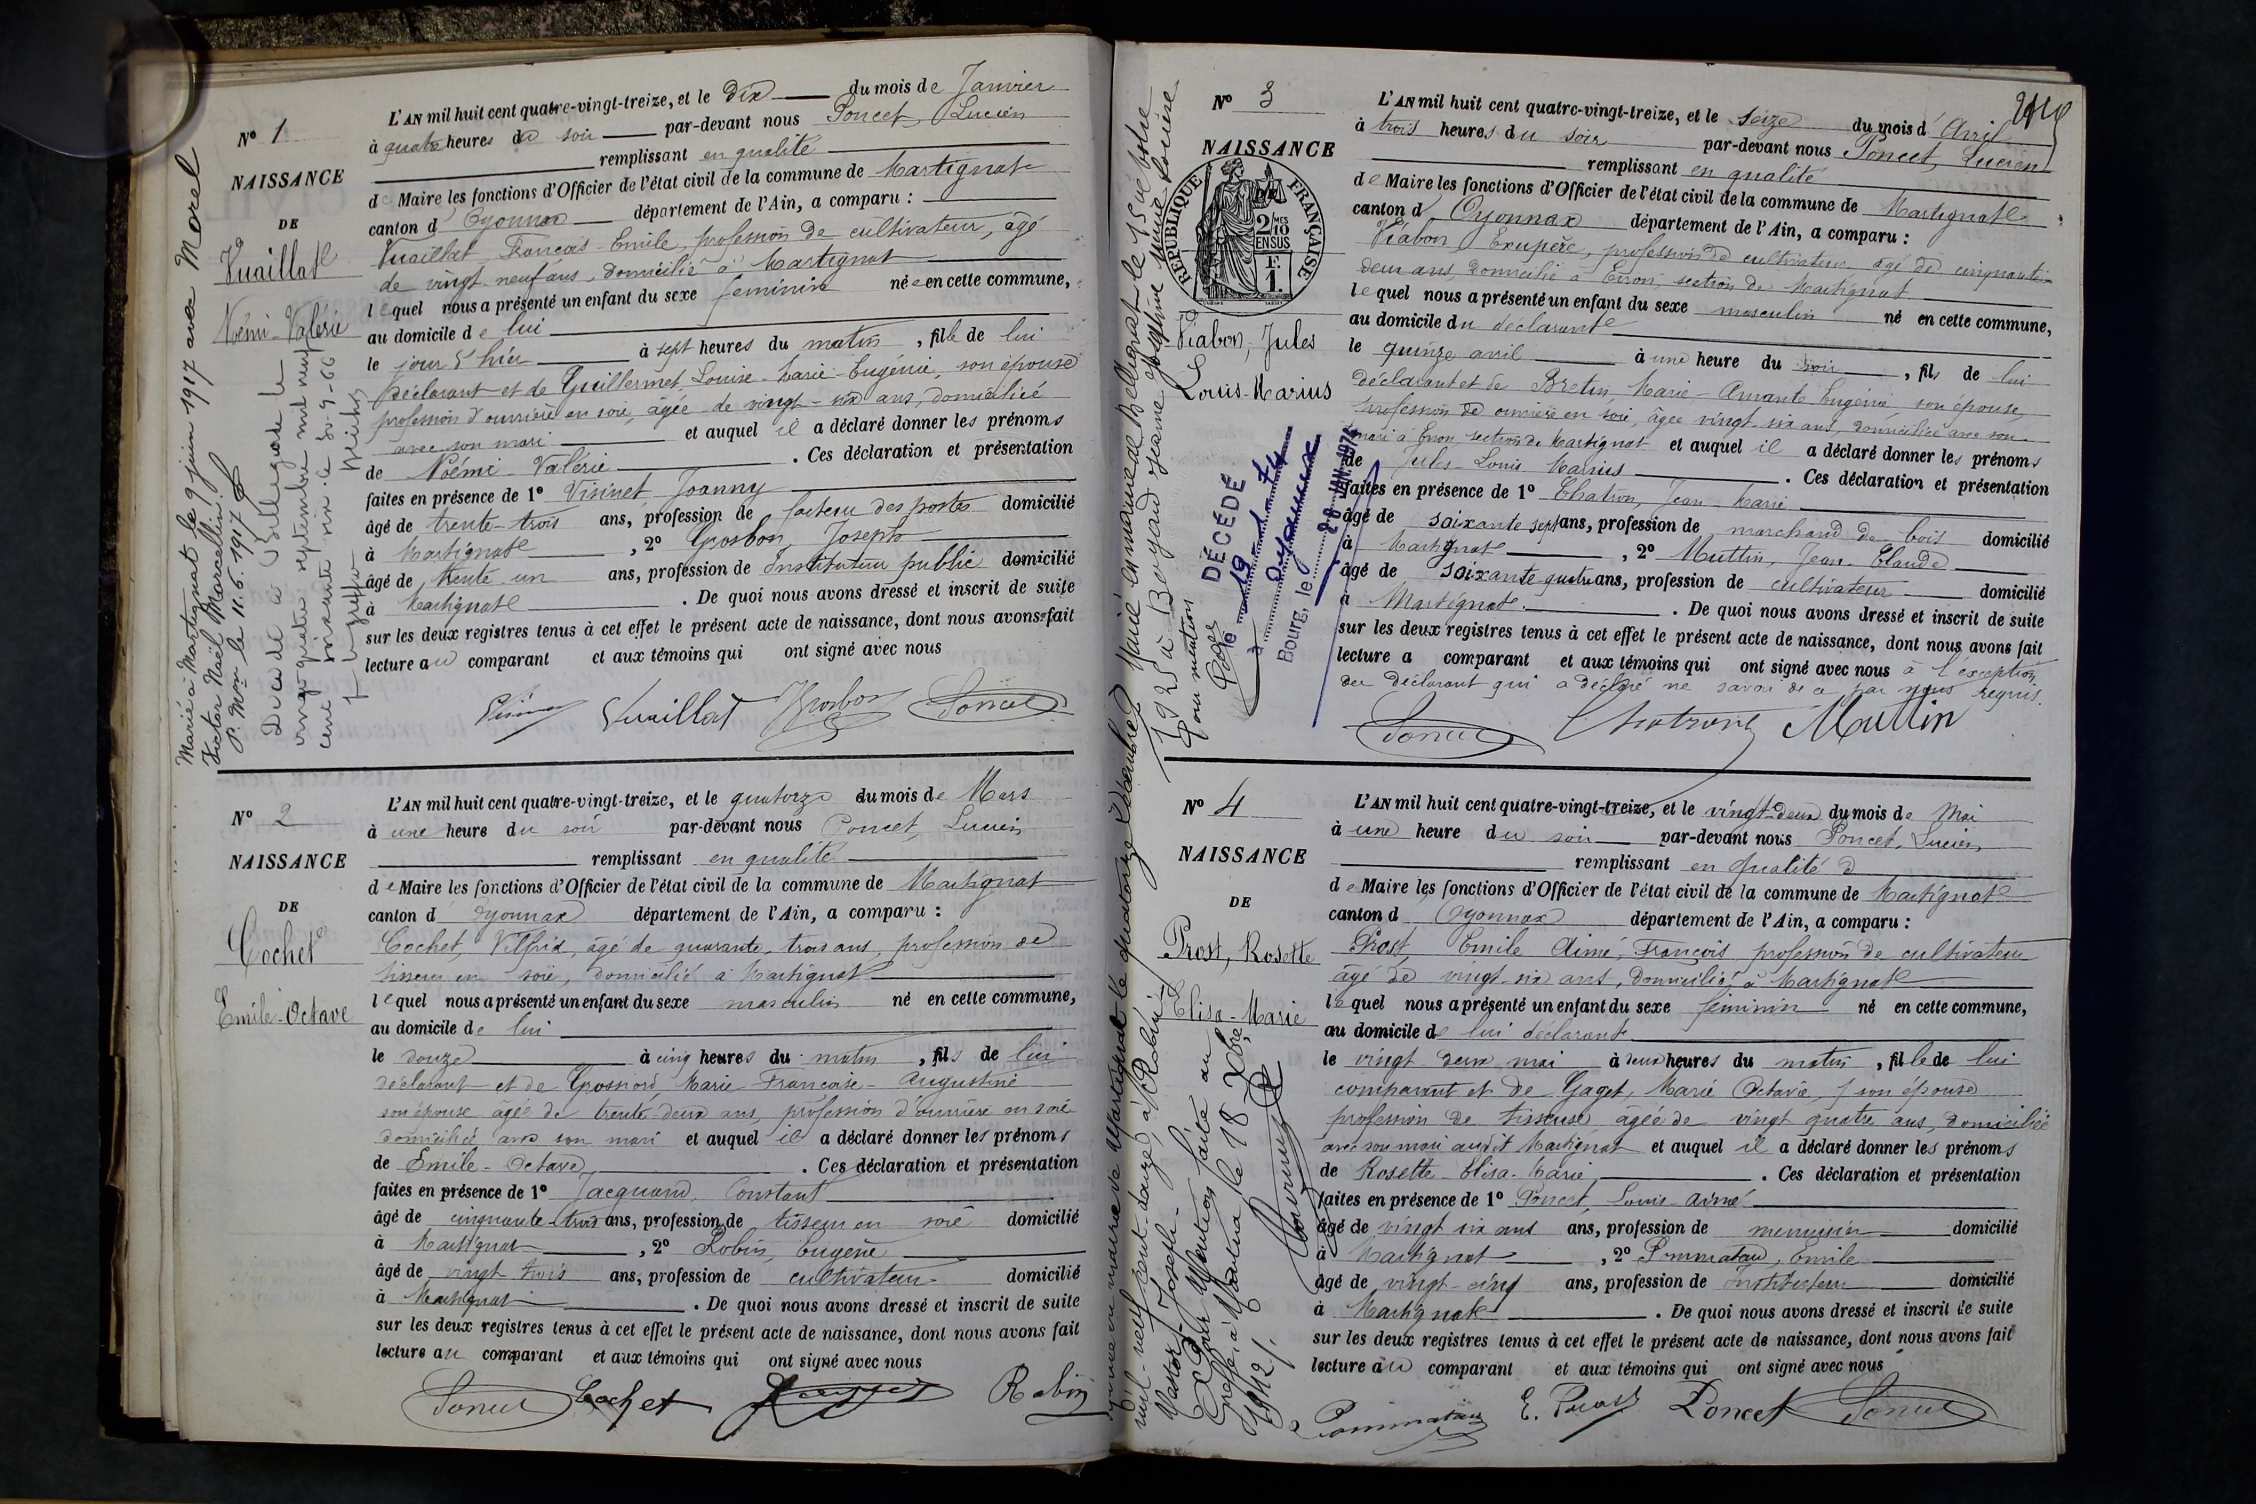 N° 1
NAISSANCE
DE
Vuaillat
Noémi-Valérie
Marié à Martignat le 9 juin 1917 avec Morel
Victor Noël Marcellin
P. Mon le 11.6.1917
Décédée à Bellegarde le
vingt quatre septembre mil neuf
cent soixante six le 30-9-66
L'AN mil huit cent quatre-vingt-treize, et le dix du mois de Janvier
à quatre heures du soir par-devant nous Poncet, Lucien
remplissant en qualité
de Maire les fonctions d'Officier de l'état civil de la commune de Martignat
canton d'Oyonnax département de l'Ain, a comparu :
Vuaillat François-Emile, profession de cultivateur, âgé
de vingt-neuf ans, domicilié à Martignat
lequel nous a présenté un enfant du sexe féminin née en cette commune,
au domicile de lui
le jour d'hier à sept heures du matin, fille de lui
déclarant et de Guillermet, Louise-Marie-Eugénie, son épouse
profession d'ouvrière en soie, âgée de vingt-six ans, domiciliée
avec son mari et auquel il a déclaré donner les prénoms
de Noémi-Valérie. Ces déclaration et présentation
faites en présence de 1° Visinet, Joanny
âgé de trente-trois ans, profession de facteur des postes domicilié
à Martignat, 2° Grosbon, Joseph
âgé de trente un ans, profession de Instituteur public domicilié
à Martignat. De quoi nous avons dressé et inscrit de suite
sur les deux registres tenus à cet effet le présent acte de naissance, dont nous avons fait
lecture au comparant et aux témoins qui ont signé avec nous
Vuaillat Grosbon Poncet
N° 2
NAISSANCE
DE
Cochet
Emile-Octave
L'AN mil huit cent quatre-vingt-treize, et le quatorze du mois de Mars
à une heure du soir par-devant nous Poncet, Lucien
remplissant en qualité
de Maire les fonctions d'Officier de l'état civil de la commune de Martignat
canton d'Oyonnax département de l'Ain, a comparu :
Cochet, Vilfrid, âgé de quarante-trois ans, profession de
tisseur en soie, domicilié à Martignat
lequel nous a présenté un enfant du sexe masculin né en cette commune,
au domicile de lui
le douze à cinq heures du matin, fils de lui
déclarant et de Grossiord Marie-Françoise-Augustine
son épouse âgée de trente-deux ans, profession d'ouvrière en soie
domiciliée avec son mari et auquel il a déclaré donner les prénoms
de Emile-Octave. Ces déclaration et présentation
faites en présence de 1° Jacquand, Constant
âgé de cinquante-trois ans, profession de tisseur en soie domicilié
à Martignat, 2° Robin, Eugène
âgé de vingt trois ans, profession de cultivateur domicilié
à Martignat. De quoi nous avons dressé et inscrit de suite
sur les deux registres tenus à cet effet le présent acte de naissance, dont nous avons fait
lecture au comparant et aux témoins qui ont signé avec nous
Poncet Cochet Robin
N° 3
NAISSANCE
RÉPUBLIQUE FRANÇAISE
2/10 MES
EN SUS
F.
1.
Viabon, Jules
Louis-Marius
1925 à Boyard Jeanne Joséphine Marie Louise
Pour mention
DÉCÉDÉ
le 19-1-74
à Oyonnax
Bourg, le 28 JAN. 1974
L'AN mil huit cent quatre-vingt-treize, et le seize du mois d'Avril
à trois heures du soir par-devant nous Poncet, Lucien
remplissant en qualité
de Maire les fonctions d'Officier de l'état civil de la commune de Martignat
canton d'Oyonnax département de l'Ain, a comparu :
Viabon Exupère, profession de cultivateur âgé de cinquante-
deux ans, domicilié à Evron, section de Martignat
lequel nous a présenté un enfant du sexe masculin né en cette commune,
au domicile du déclarant
le quinze avril à une heure du soir, fils de lui
déclarant et de Bretin, Marie-Amante Eugénie, son épouse,
profession de ouvrière en soie, âgée vingt-six ans, domiciliée avec son
mari à Evron section de Martignat et auquel il a déclaré donner les prénoms
de Jules-Louis Marius. Ces déclaration et présentation
faites en présence de 1° Chatron, Jean-Marie
âgé de soixante sept ans, profession de marchand de bois domicilié
à Martignat, 2° Muttin, Jean-Claude
âgé de soixante quatre ans, profession de cultivateur domicilié
à Martignat. De quoi nous avons dressé et inscrit de suite
sur les deux registres tenus à cet effet le présent acte de naissance, dont nous avons fait
lecture a comparant et aux témoins qui ont signé avec nous à l'exception
du déclarant qui a déclaré ne savoir de ce par nous requis.
Poncet Chatron Muttin
N° 4
NAISSANCE
DE
Prost, Rosette
Elisa-Marie
Mariée en mairie de Martignat le quatorze décembre
mil-neuf cent-douze, à Robin
Nestor-Joseph-
Pour Mention faite au
Greffe à Nantua le 18 Xbre
1912
L'AN mil huit cent quatre-vingt-treize, et le vingt-deux du mois de Mai
à une heure du soir par-devant nous Poncet, Lucien
remplissant en qualité d
de Maire les fonctions d'Officier de l'état civil de la commune de Martignat
canton d'Oyonnax département de l'Ain, a comparu :
Prost, Emile Aimé, François profession de cultivateur
âgé de vingt-six ans, domicilié à Martignat
lequel nous a présenté un enfant du sexe féminin né en cette commune,
au domicile de lui déclarant
le vingt deux mai à deux heures du matin, fille de lui
comparant et de Gaget, Marie Octavie, son épouse
profession de tisseuse, âgée de vingt quatre ans, domiciliée
avec son mari audit Martignat et auquel il a déclaré donner les prénoms
de Rosette-Elisa-Marie. Ces déclaration et présentation
faites en présence de 1° Poncet, Louis-Aimé
âgé de vingt six ans ans, profession de menuisier domicilié
à Martignat, 2° Pommatau, Emile
âgé de vingt-cinq ans, profession de Instituteur domicilié
à Martignat. De quoi nous avons dressé et inscrit de suite
sur les deux registres tenus à cet effet le présent acte de naissance, dont nous avons fait
lecture au comparant et aux témoins qui ont signé avec nous
Pommatau E. Prost Poncet Poncet